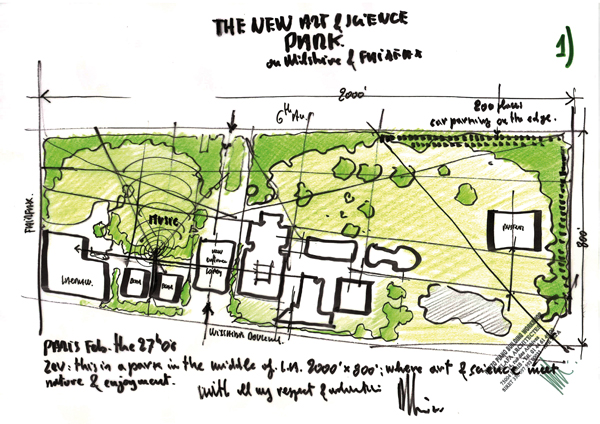 THE NEW ART & SCIENCE
PARK.
on Wilshire & FAIRFAX
1)
2000'
6th Av.
200 places
car parking on the edge.
FAIRFAX.
MUSIC
MUSEUM
new
entrance
800'
WILSHIRE BOULEVARD.
PARIS Feb. the 27th 05
Zev: this is a park in the middle of L.A. 2000' x 800', where art & science meet
nature & enjoyment.
with all my respect & admiration